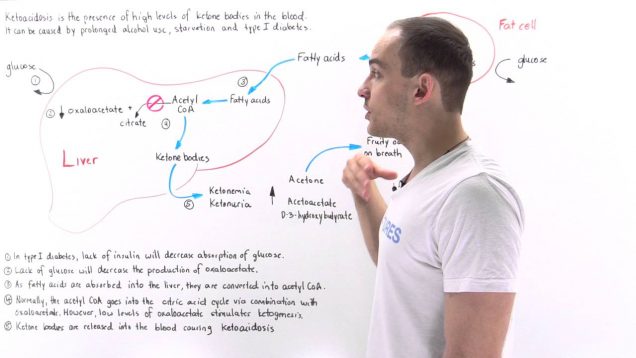 Ketoacidosis is the presence of high levels of ketone bodies in the blood.
It can be caused by prolonged alcohol use, starvation and type I diabetes.
Fat cell
Fatty acids
glucose
①
glucose
③
② ↓ oxaloacetate +
citrate
Acetyl
CoA
Fatty acids
④
Liver
Ketone bodies
⑤
Ketonemia
Ketonuria
Acetone
Acetoacetate
D-3-hydroxybutyrate
Fruity
on breath
① In type I diabetes, lack of insulin will decrease absorption of glucose.
② Lack of glucose will decrease the production of oxaloacetate.
③ As fatty acids are absorbed into the liver, they are converted into acetyl CoA.
④ Normally, the acetyl CoA goes into the citric acid cycle via combination with
oxaloacetate. However, low levels of oxaloacetate stimulates ketogenesis.
⑤ Ketone bodies are released into the blood causing ketoacidosis